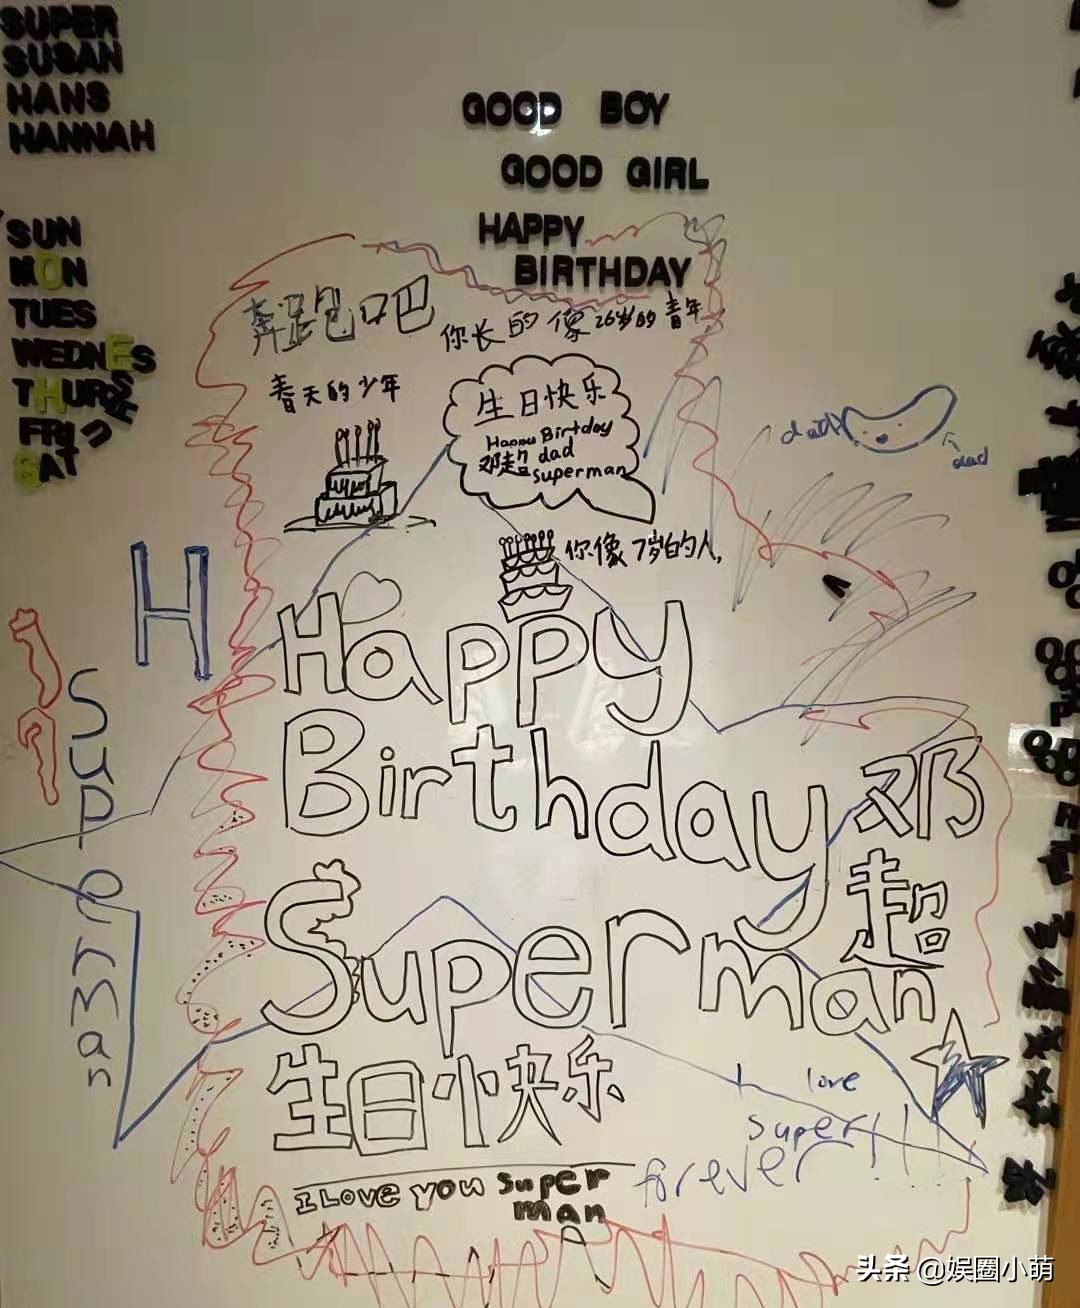 SUPER
SUSAN
HANS
HANNAH
GOOD BOY
GOOD GIRL
HAPPY
BIRTHDAY
SUN
MON
TUES
WEDNES
THURS
FRI
SAT
奔跑吧
你长的像26岁的青年
春天的少年
生日快乐
Happy Birtday
邓超 dad
superman
dad
你像7岁的人,
H
Superman
Happy
Birthday 邓
超
Superman
生日快乐
I love
super!!!
forever
I Love you super
man
头条 @娱圈小萌